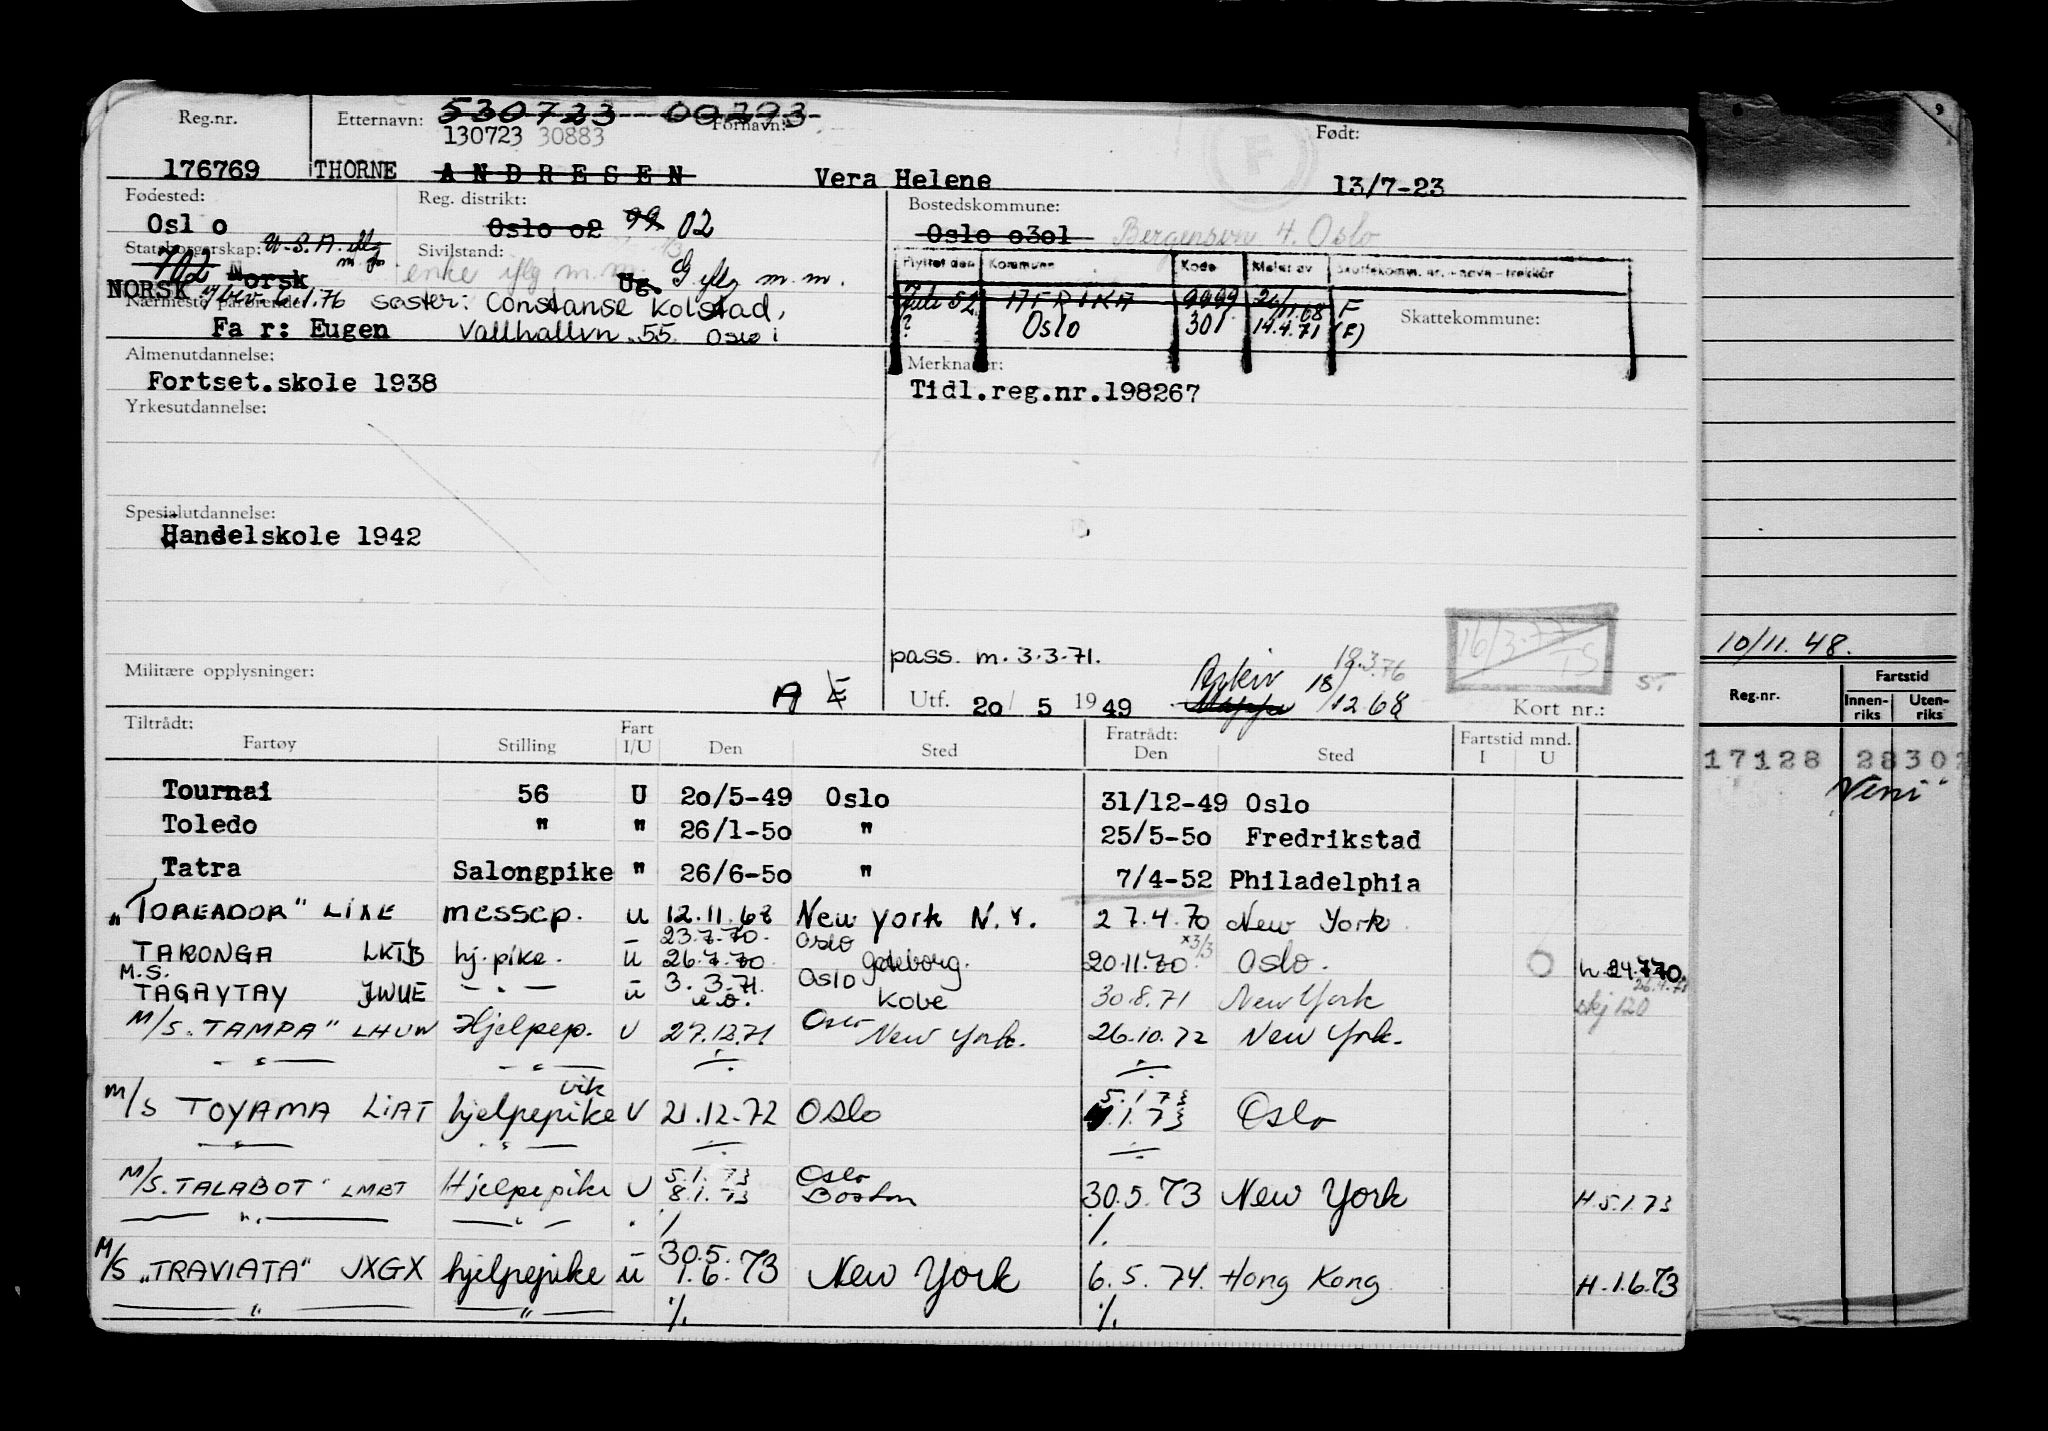 530723 00293
Reg.nr.
Etternavn:
130723 30883
Fornavn:
Født:
176769 THORNE ANDRESEN Vera Helene 13/7-23
Fødested:
Reg. distrikt:
Bostedskommune:
Oslo
Oslo o2 99 02
Oslo o3o1 Bergensvn 4. Oslo
Statsborgerskap: U.S.A. iflg m.m.
Sivilstand:
702 Norsk
enke iflg m.m. Ug. G iflg m.m.
Flyttet den Kommune Kode Meldt av Skattekomm. nr. - navn - trekkår
NORSK 6.1.76
Nærmeste pårørende:
søster: Constanse Kolstad,
Juli 52 AFRIKA 9999 26/11.68 F
Fa r: Eugen Vallhallvn. 55. Oslo
? Oslo 301 14.4.71 (F)
Skattekommune:
Almenutdannelse:
Merknader:
Fortset.skole 1938
Tidl.reg.nr.198267
Yrkesutdannelse:
Spesialutdannelse:
Handelskole 1942
pass. m. 3.3.71.
16/3-77 TS
Militære opplysninger:
A E
Utf. 20/ 5 19 49
Arkiv 18/12.68
Mappe
18.3.76
Kort nr.:
Tiltrådt:
Fartøy Stilling Fart I/U Den Sted
Fratrådt:
Den Sted
Fartstid mnd.
I U
Tournai 56 U 20/5-49 Oslo 31/12-49 Oslo
Toledo " " 26/1-50 " 25/5-50 Fredrikstad
Tatra Salongpike " 26/6-50 " 7/4-52 Philadelphia
"TOREADOR" LIXE messep. u 12.11.68 New York N.Y. 27.4.70 New York
TARONGA LKTB hj.pike. u 23.7.70. 26.7.70. Oslo Gøteborg. 20.11.70. x3/3 Oslo. h 24.7.70.
M.S. TAGAYTAY JWUE - " - u 3.3.71. Oslo Kobe 30.8.71 New York skj 120
M/S. "TAMPA" LHUW Hjelpep. U 27.12.71 Oslo New York. 26.10.72 New York.
- " - - " - ./.
./.
M/S TOYAMA LIAT hjelpepike vik U 21.12.72 Oslo 5.1.73 Oslo
- " - - " - ./.
./.
M/S. TALABOT LMBT Hjelpepike U 5.1.73 8.1.73 Oslo Boston 30.5.73 New York H.5.1.73
- " - - " - ./.
./.
M/S "TRAVIATA" JXGX hjelpepike u 30.5. 1.6.73 New York 6.5.74. Hong Kong. H.1.6.73
- " - - " - ./.
./.
9
10/11.48.
Reg.nr.
Fartstid
Innen-riks
Uten-riks
17128 28302